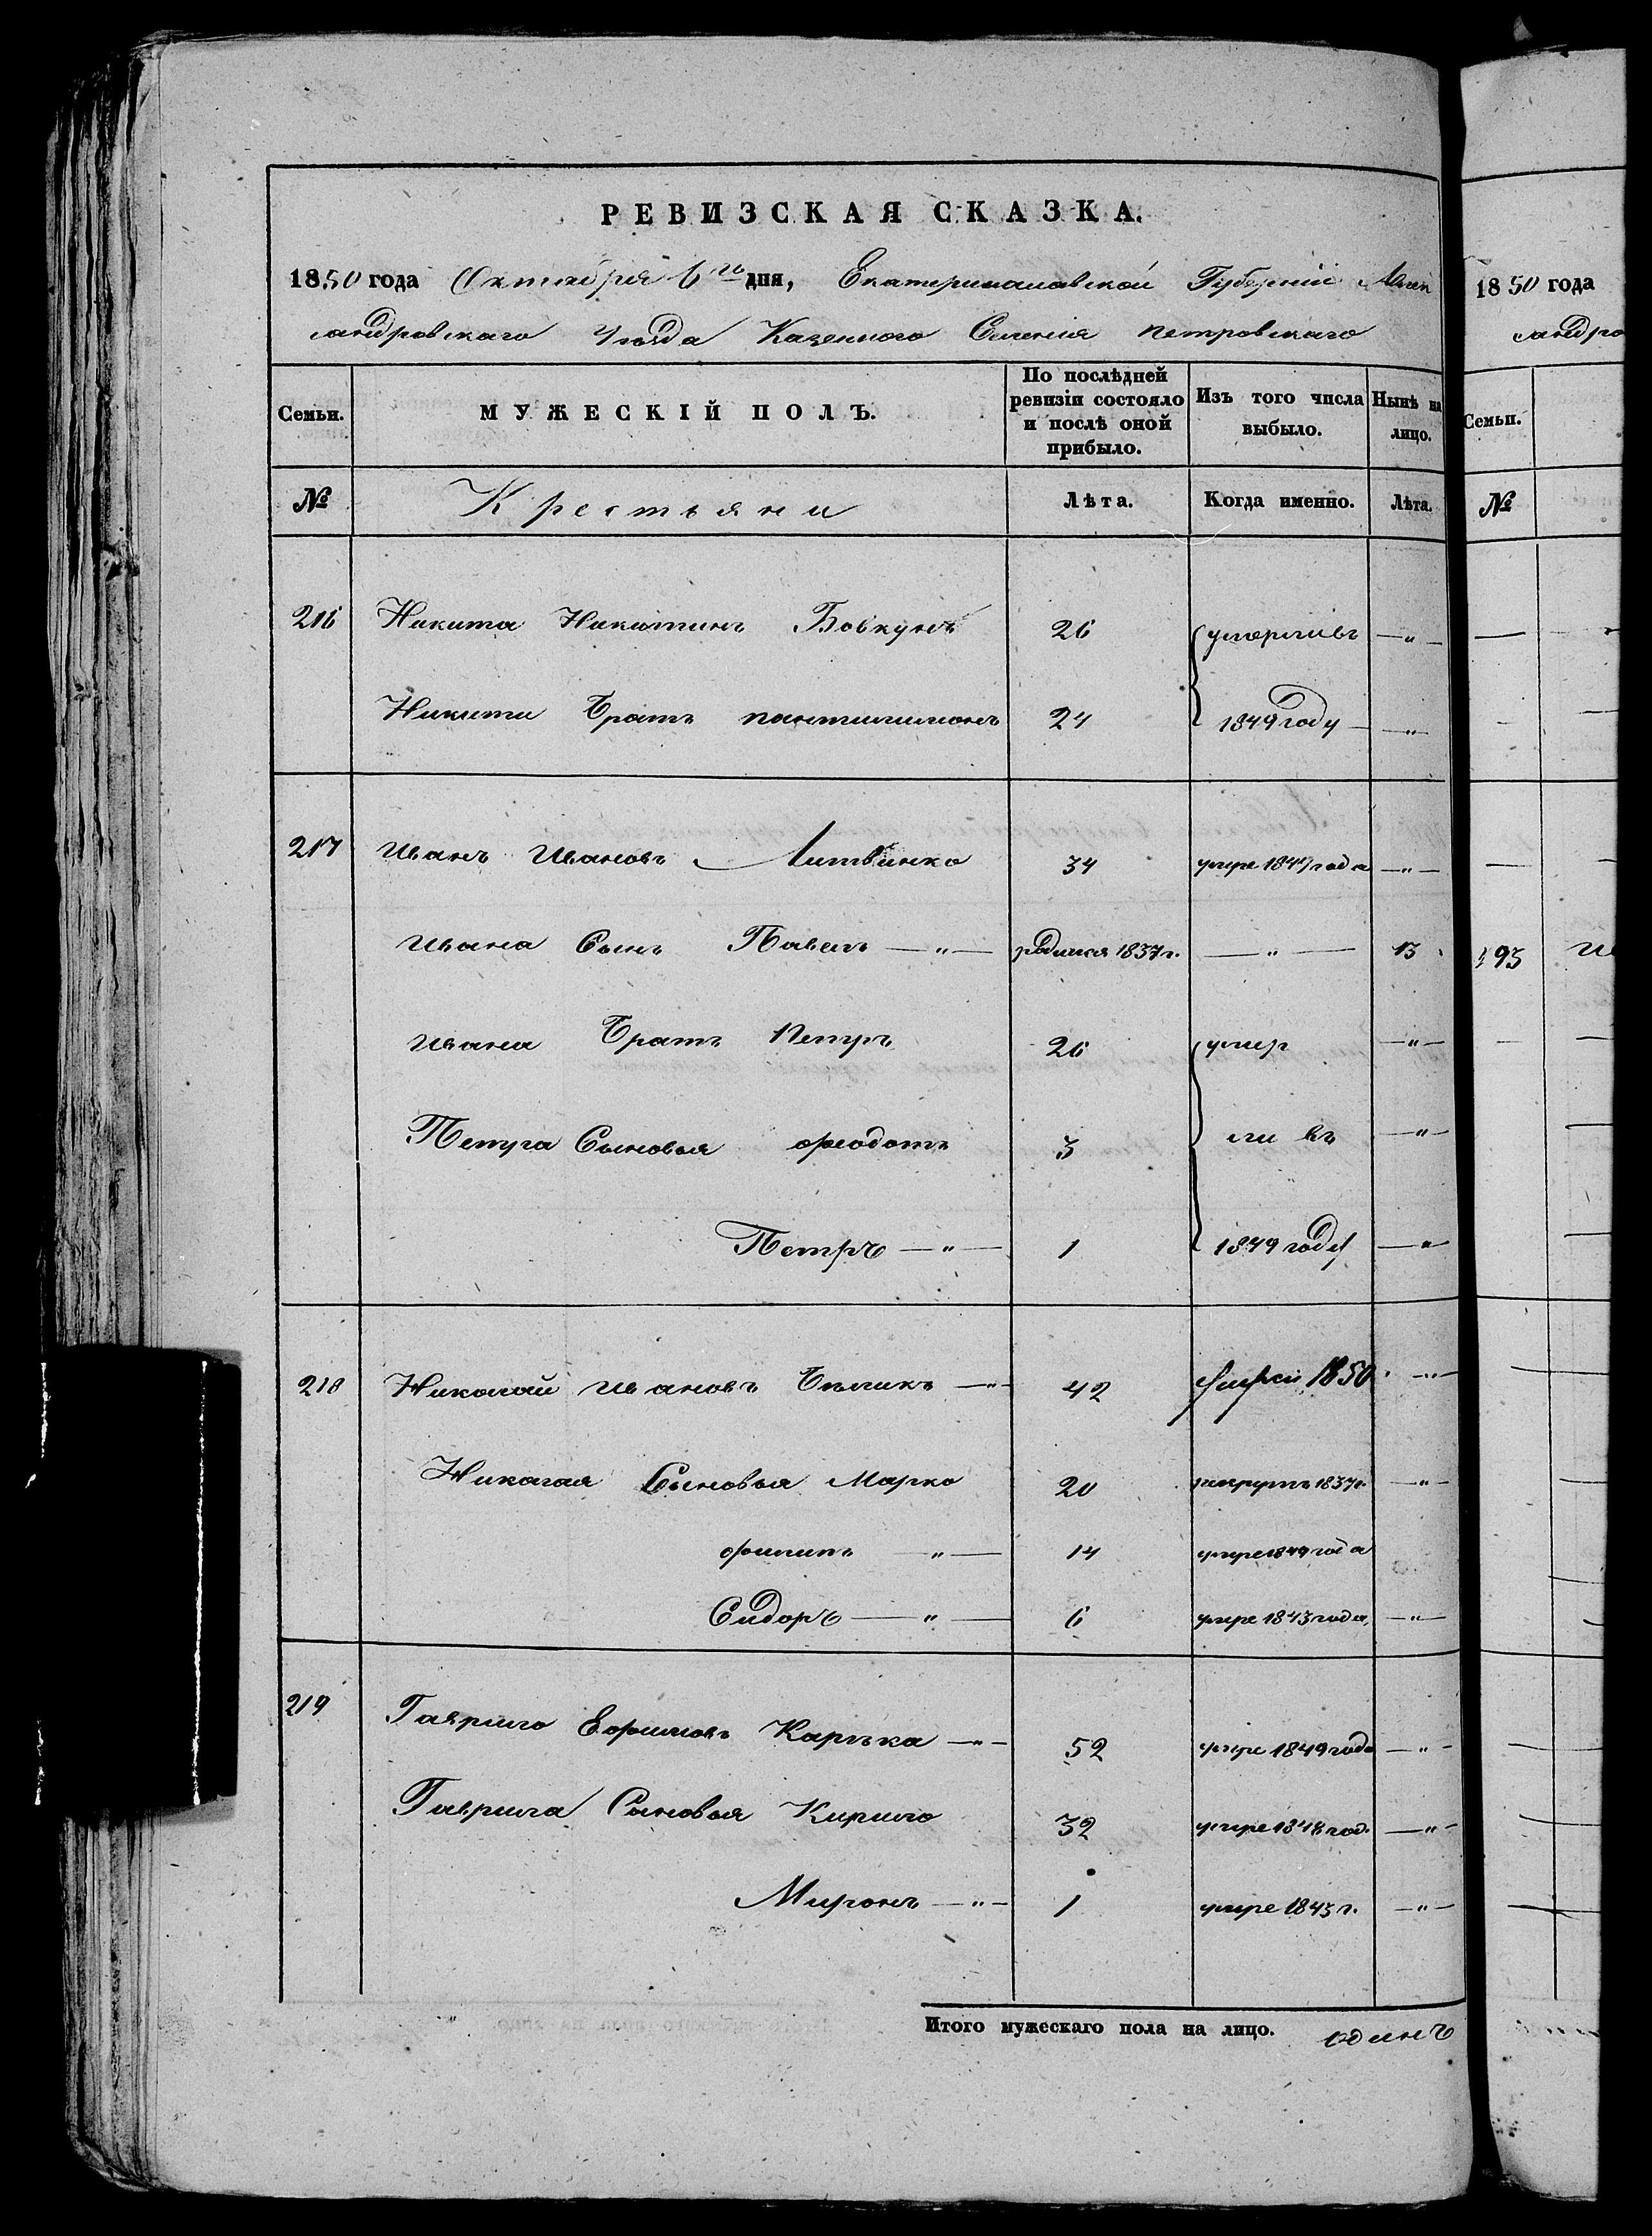 РЕВИЗСКАЯ СКАЗКА.
1850 года Октября 6го дня, Екатеринославской Губерніи Алек
сандровскаго Уѣзда Казенного Селенія петровскаго
Семьи. МУЖЕСКІЙ ПОЛЪ. По послѣдней ревизіи состояло и послѣ оной прибыло. Изъ того числа выбыло. Нынѣ на лицо.
№ Крестьяни Лѣта. Когда именно. Лѣта.
216 Никита Никитинъ Бовкунъ 26 умерли въ —"—
Никиты Братъ пантилимонъ 24 1849 году —"—
217 Иванъ Ивановъ Литвинко 34 умре 1849 года —"—
Ивана Сынъ Павелъ —"— родился 1837 г. —"— 13
Ивана Братъ Петръ 26 умер —"—
Петра Сыновья Феодотъ 3 ли въ —"—
Петръ —"— 1 1849 году —"—
218 Николай Ивановъ Бѣликъ —"— 42 1850 —"—
Николая Сыновья Марко 20 рекрутъ 1837 г. —"—
Филипъ —"— 14 умре 1849 года
Сидоръ —"— 6 умре 1843 года —"—
219 Гаврило Ефимовъ Карпка —"— 52 умре 1849 года —"—
Гаврила Сыновья Кирило 32 умре 1848 год. —"—
Миронъ —"— 1 умре 1843 г. —"—
Итого мужескаго пола на лицо. одинъ
1850 года
сандро
Семьи.
№
193